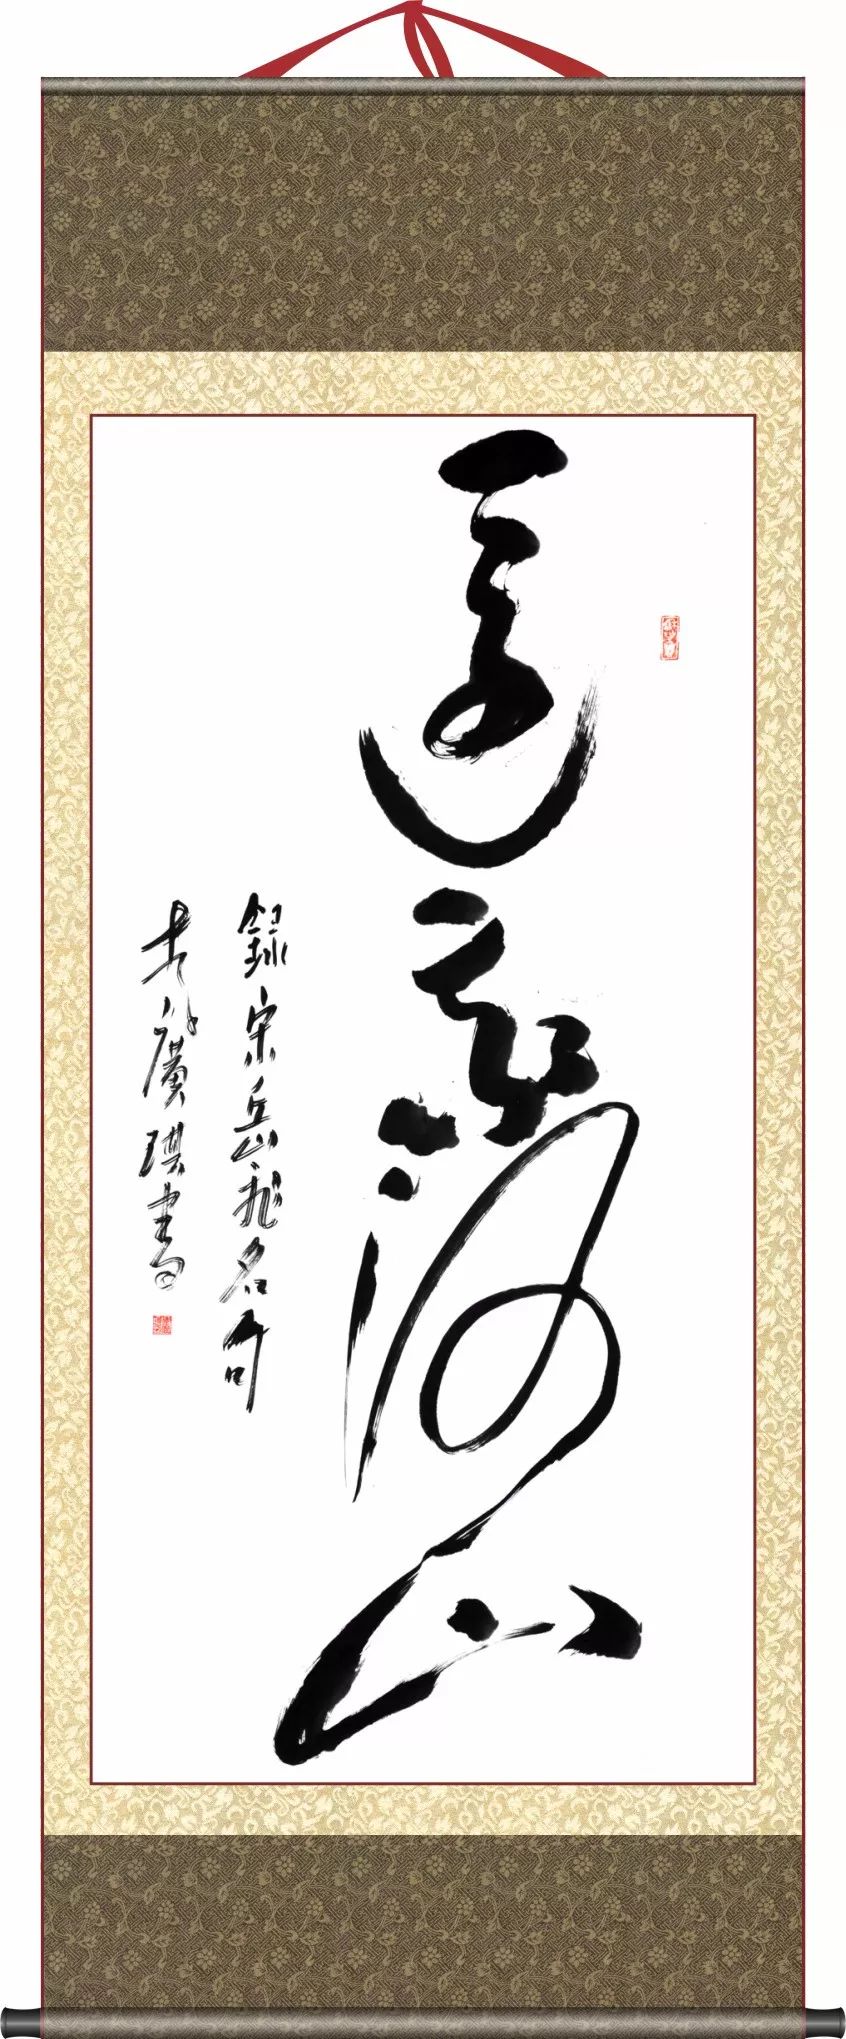 還我河山
錄宋岳飛名句
廣琪書